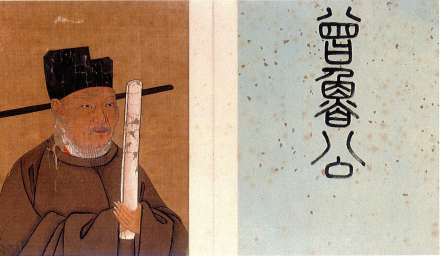 曾魯公